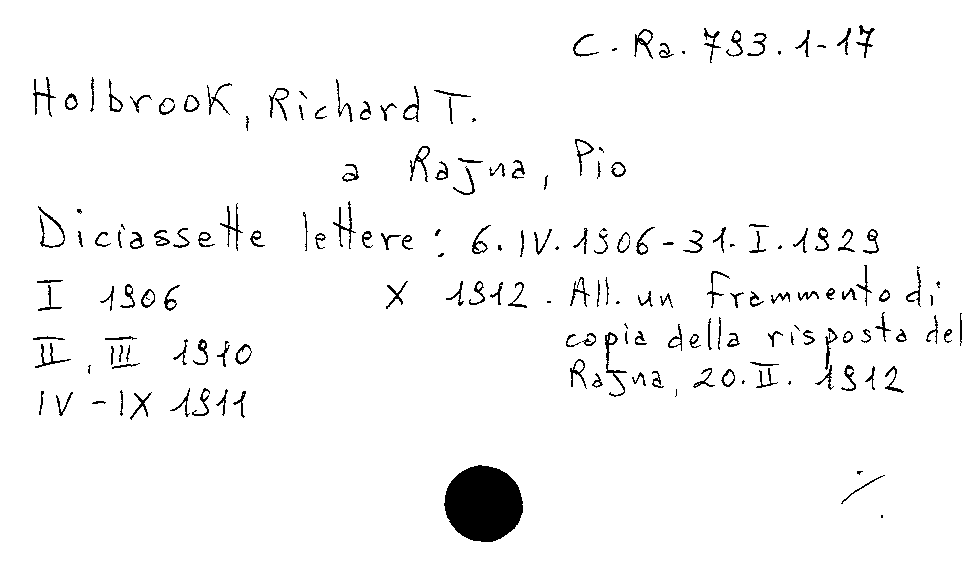 C. Ra. 793. 1-17
Holbrook, Richard T.
a Rajna, Pio
Diciassette lettere: 6. IV. 1906 - 31. I. 1929
I 1906
II, III 1910
IV - IX 1911
X 1912. All. un frammento di
copia della risposta del
Rajna, 20. II. 1912
./.